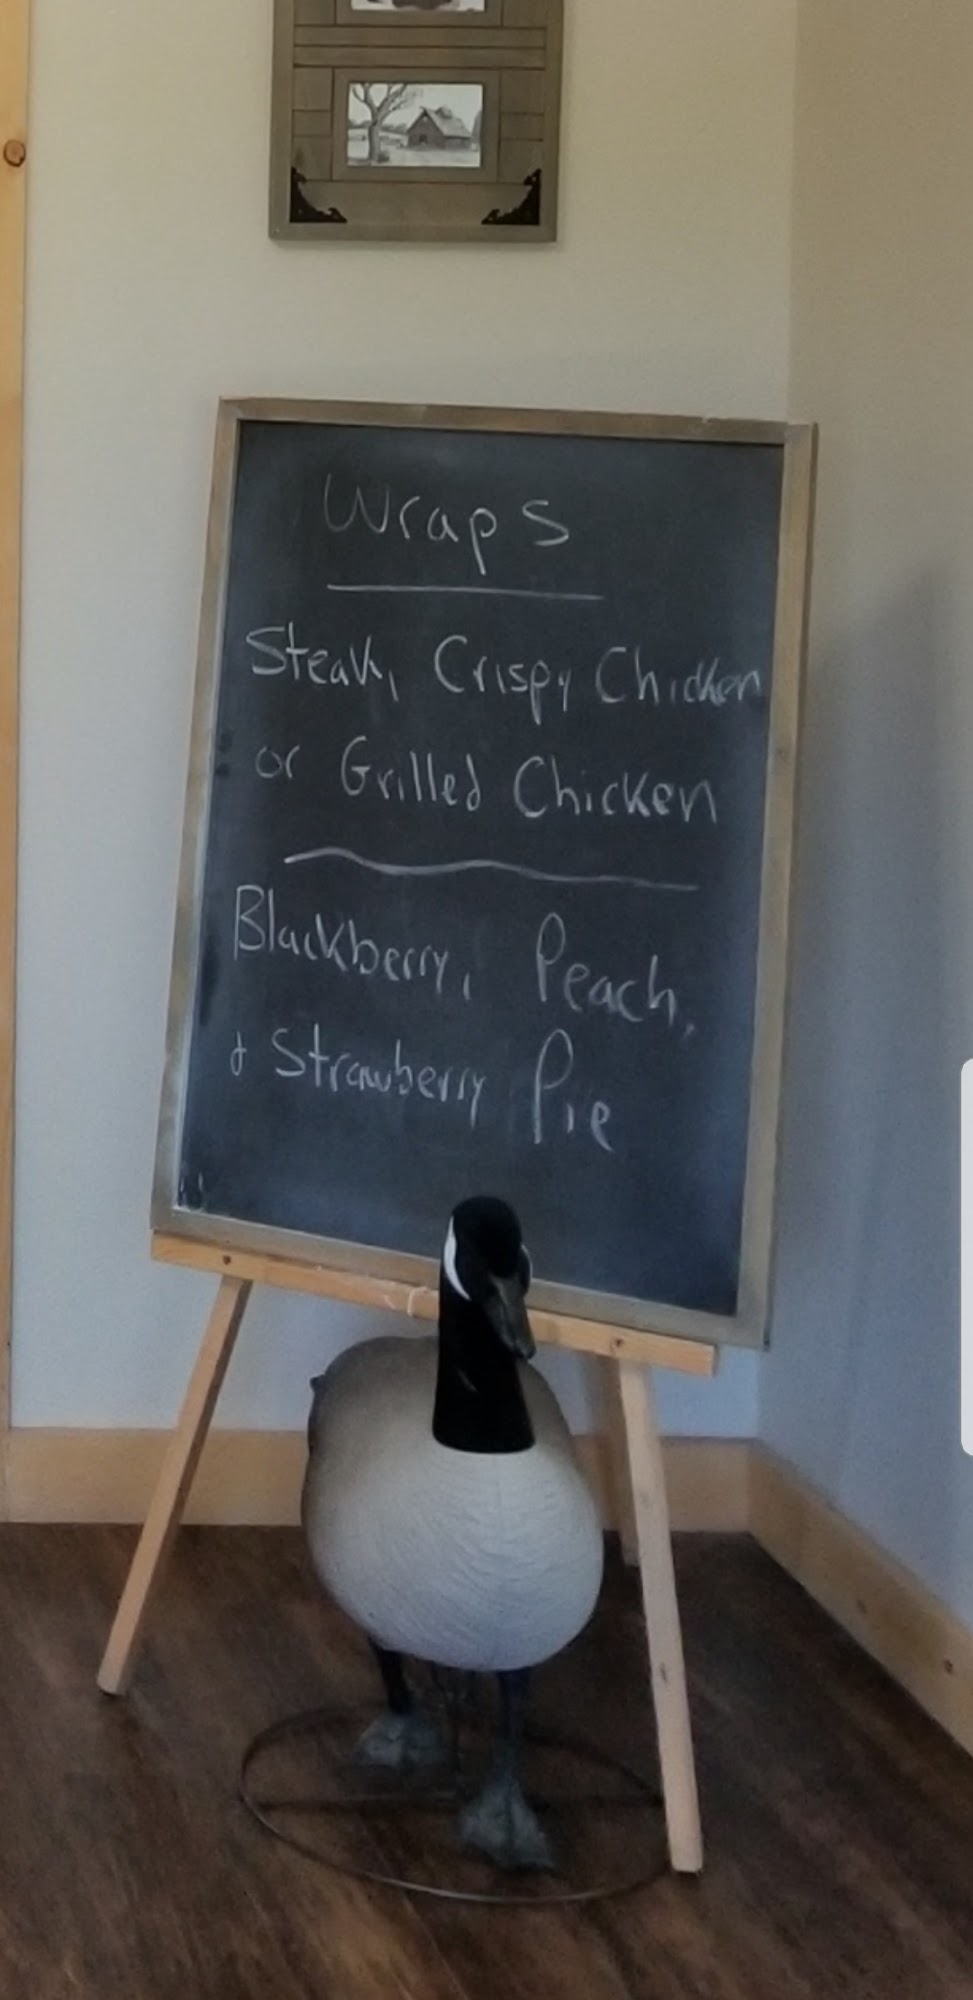 Wraps
Steak, Crispy Chicken
or Grilled Chicken
Blackberry, Peach,
& Strawberry Pie